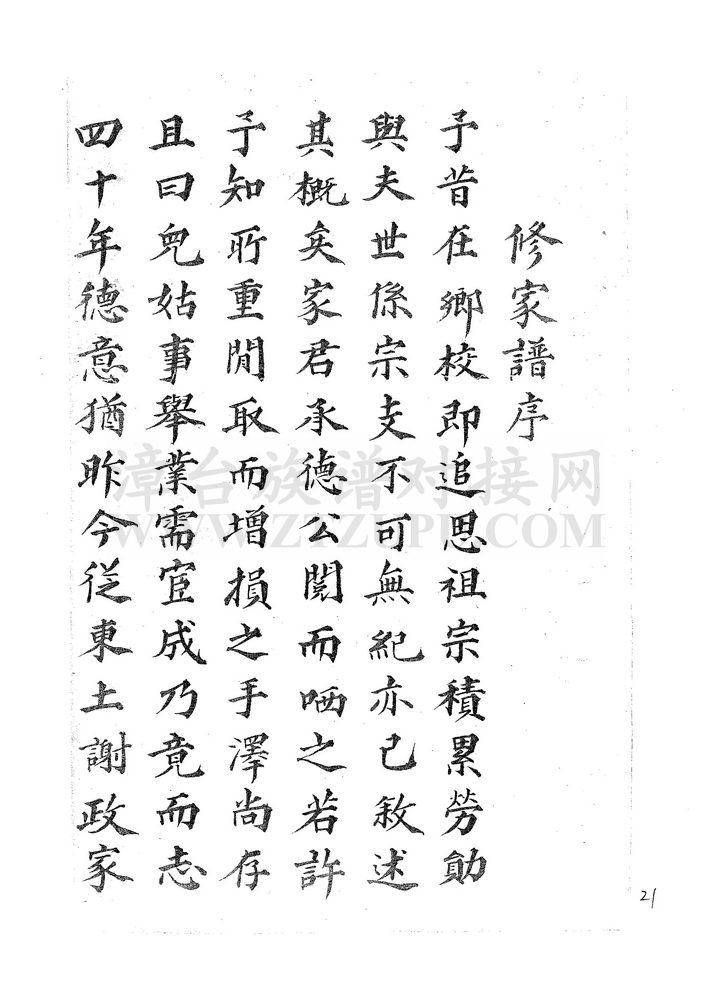 修家譜序
予昔在鄉校即追思祖宗積累勞勩
與夫世係宗支不可無紀亦已敘述
其概矣家君承德公閱而哂之若許
予知所重閒取而增損之手澤尚存
且曰兒姑事舉業需宦成乃竟而志
四十年德意猶昨今從東土謝政家
漳台族谱对接网
WWW.ZTZUPU.COM
21